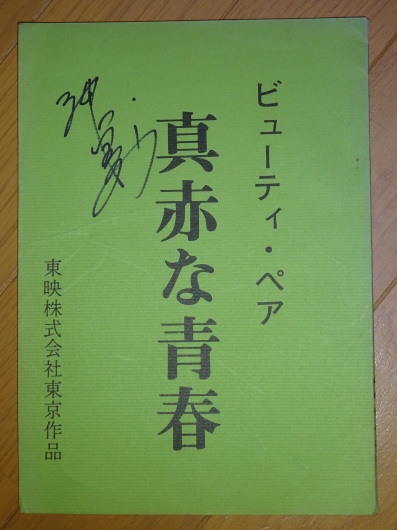 ビューティ・ペア
真赤な青春
東映株式会社東京作品